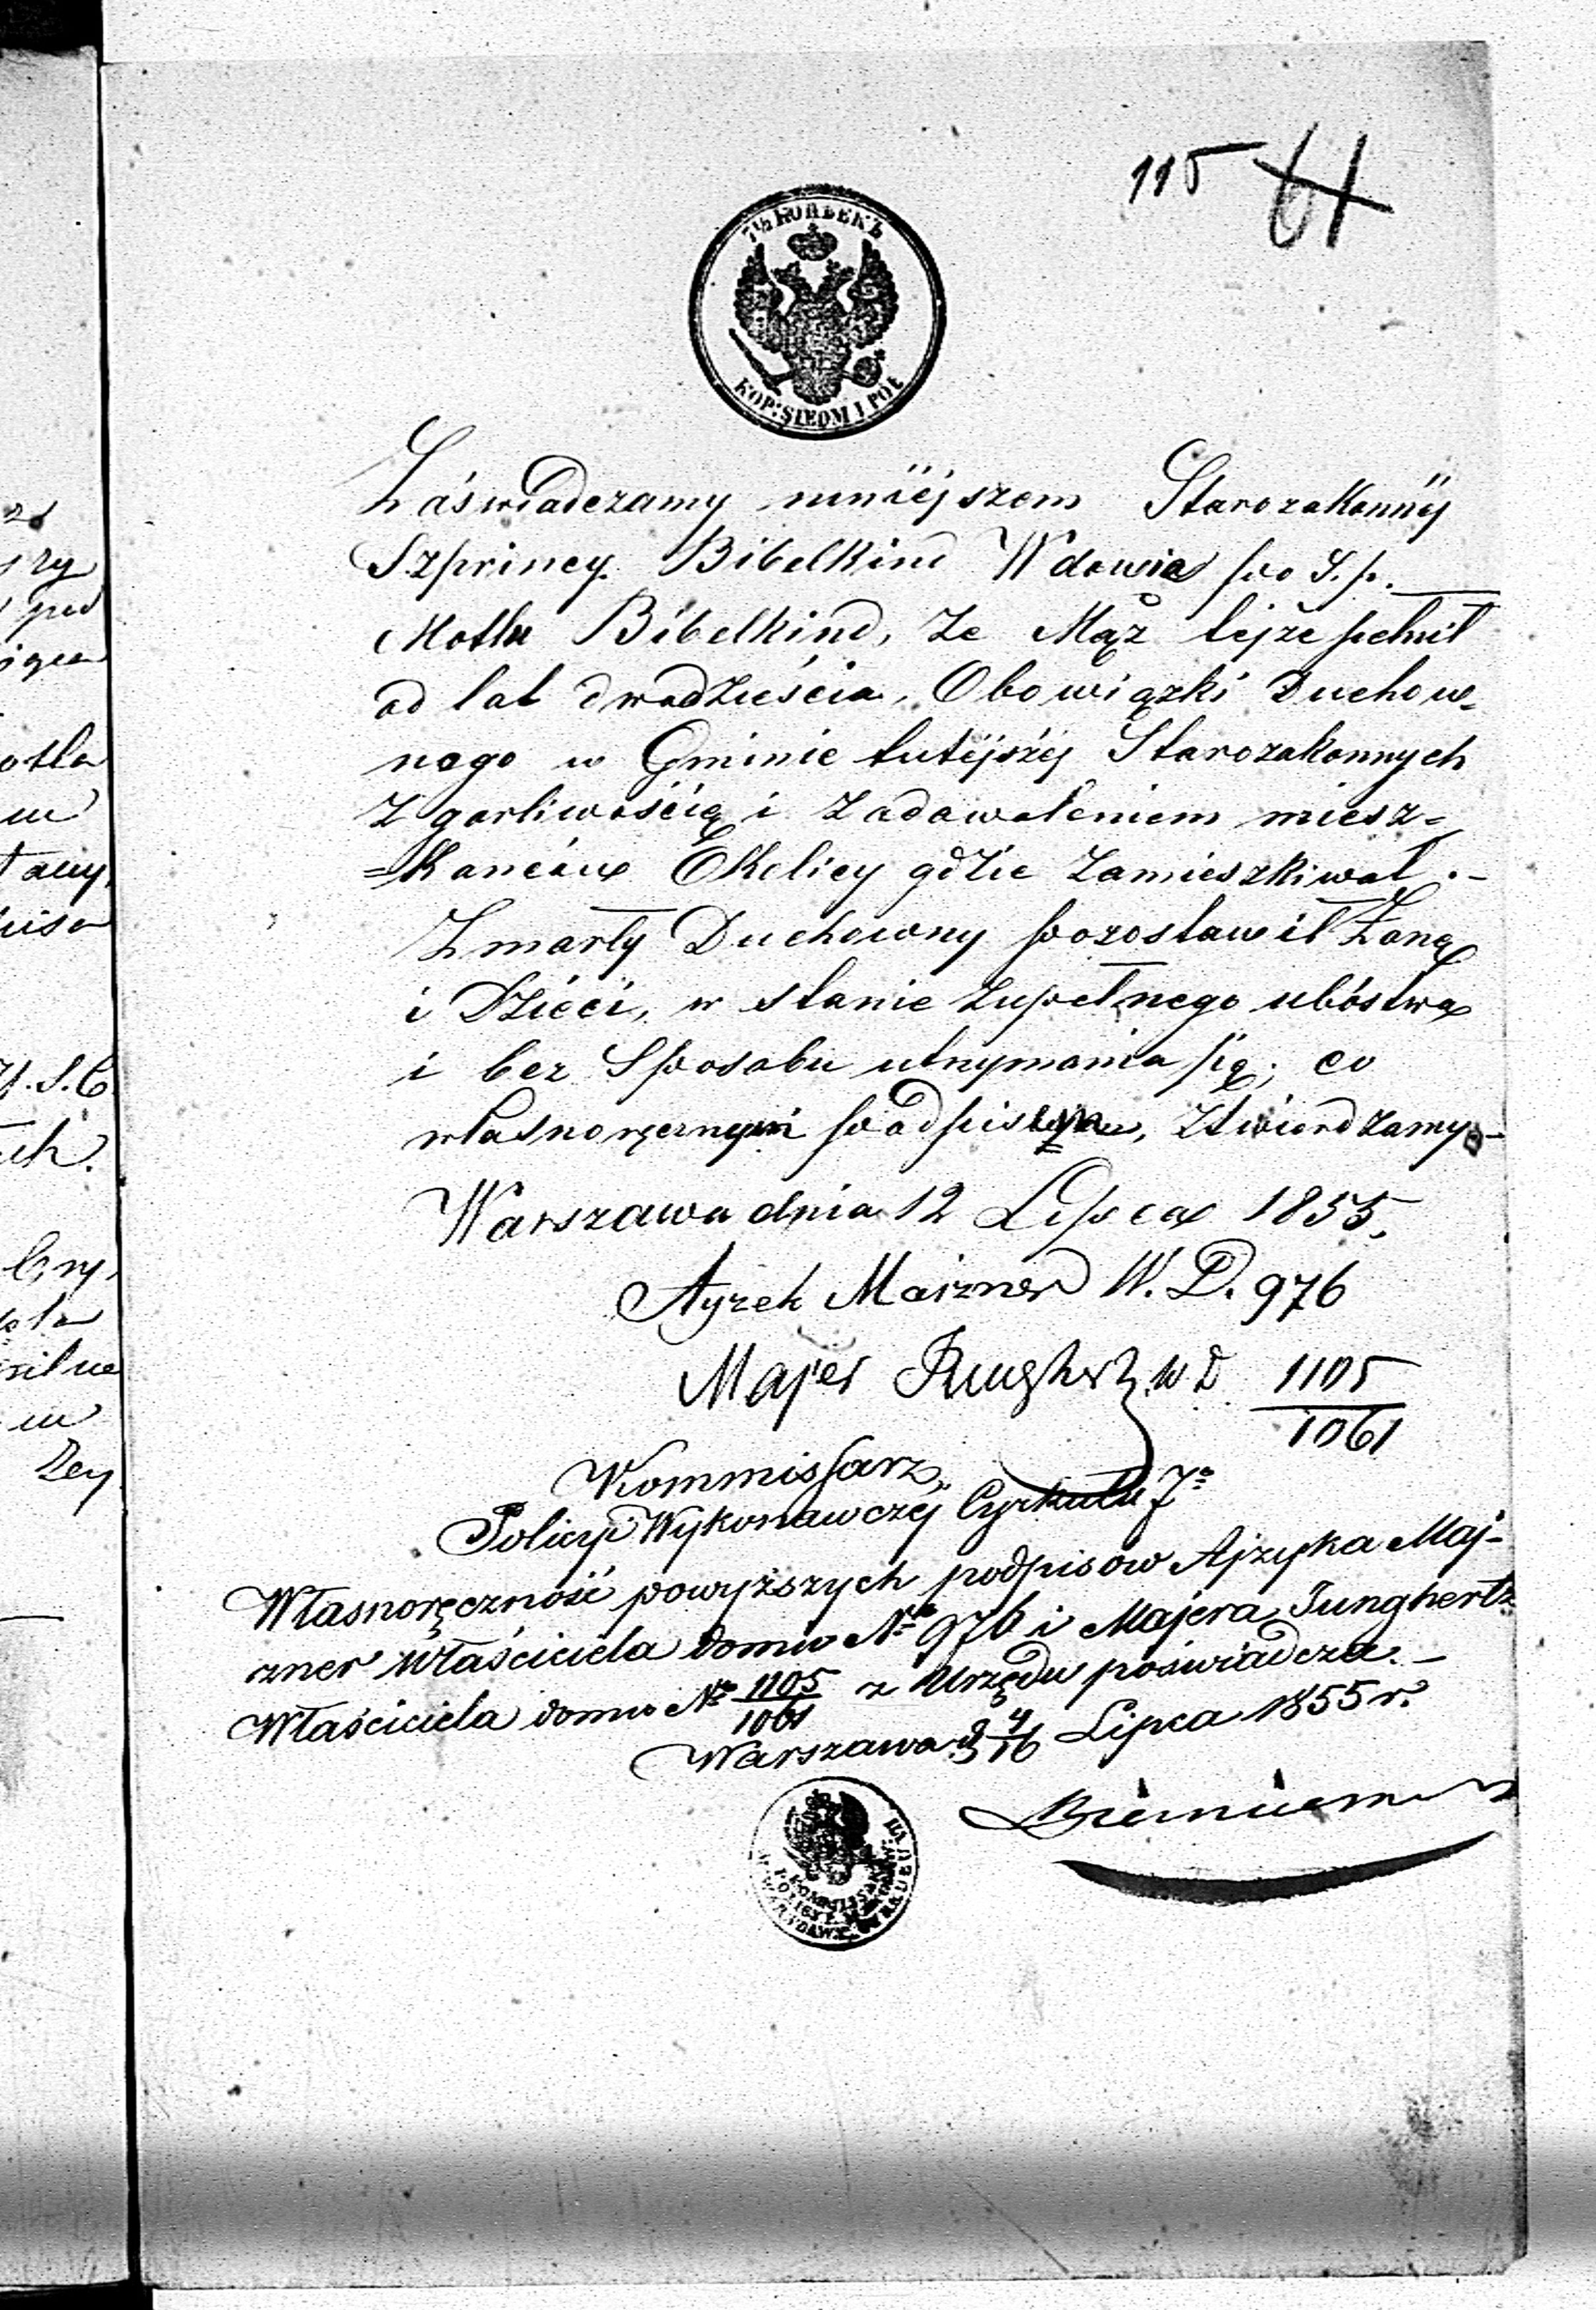 115 61
7½ КОПѢЕКЪ
KOP: SIEDM I POŁ
Zaświadczamy niniejszem Starozakonnéj
Szprincy Bibelkind Wdowie po ś. p.
Motlu Bibelkind, że Mąż tejże pełnił
od lat dwadzieścia, Obowiązki Duchow-
nego w Gminie tutéjszéj Starozakonnych
z gorliwością i zadowoleniem miesz-
=kańców Okolicy gdzie zamieszkiwał.-
Zmarły Duchowny pozostawił Żonę
i Dzieci, w stanie zupełnego ubóstwa
i bez Sposobu utrzymania się; co
własnoręcznym podpisem, ztwierdzamy-
Warszawa dnia 12 Lipca 1855.
Ayzek Maizner W. D. 976
Majer Jungherz W D 1105
1061
Kommissarz
Policyi Wykonawczéj Cyrkułu 7º
Własnoręczność powyższych podpisów Ajzyka Maj-
zner właściciela domu Nº 976 i Majera Junghertz
Właściciela domu Nº 1105/1061 z Urzędu poświadcza.-
Warszawa d 4/16 Lipca 1855 r.